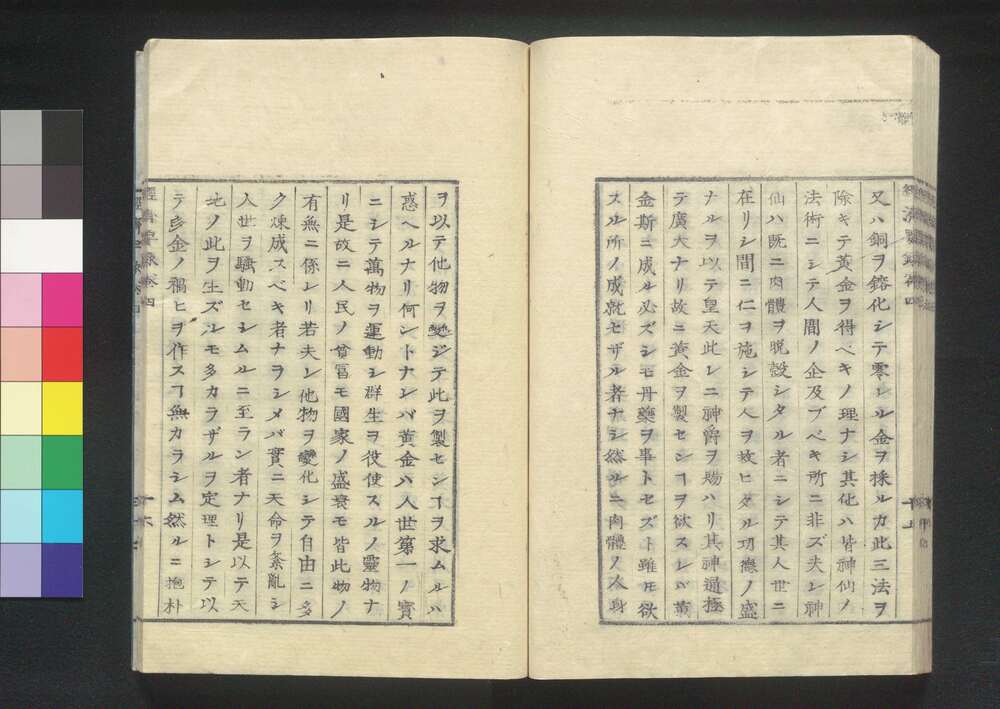 又ハ銅ヲ鎔化シテ零シル金ヲ採ルカ此三法ヲ
除キテ黄金ヲ得ベキノ理ナシ其化ハ皆神仙ノ
法術ニシテ人間ノ企及ブベキ所ニ非ズ夫レ神
仙ハ既ニ肉體ヲ脱殻シタル者ニシテ其人世ニ
在リシ間ニ仁ヲ施シテ人ヲ故ヒタル功德ノ盛
ナルヲ以テ皇天此レニ神爵ヲ賜ハリ其神通極
テ廣大ナリ故ニ黄金ヲ製セシヿヲ欲スレバ黄
金斯ニ成ル必ズシモ丹藥ヲ事トセズト雖モ欲
スル所ノ成就セザル者ナシ然ルニ肉體ノ人身
ヲ以テ他物ヲ變ジテ此ヲ製センヿヲ求ムルハ
惑ヘルナリ何ントナレバ黄金ハ人世第一ノ寳
ニシテ萬物ヲ運動シ群生ヲ役使スルノ靈物ナ
リ是故ニ人民ノ貧冨モ國家ノ盛衰モ皆此物ノ
有無ニ係レリ若夫レ他物ヲ變化シテ自由ニ多
ク煉成スベキ者ナラシメバ實ニ天命ヲ紊亂シ
人世ヲ騷動セシムルニ至ラン者ナリ是以テ天
地ノ此ヲ生ズルモ多カラザルヲ定理トシテ以
テ多金ノ禍ヒヲ作スヿ無カラシム然ルニ抱朴
經濟要録卷四